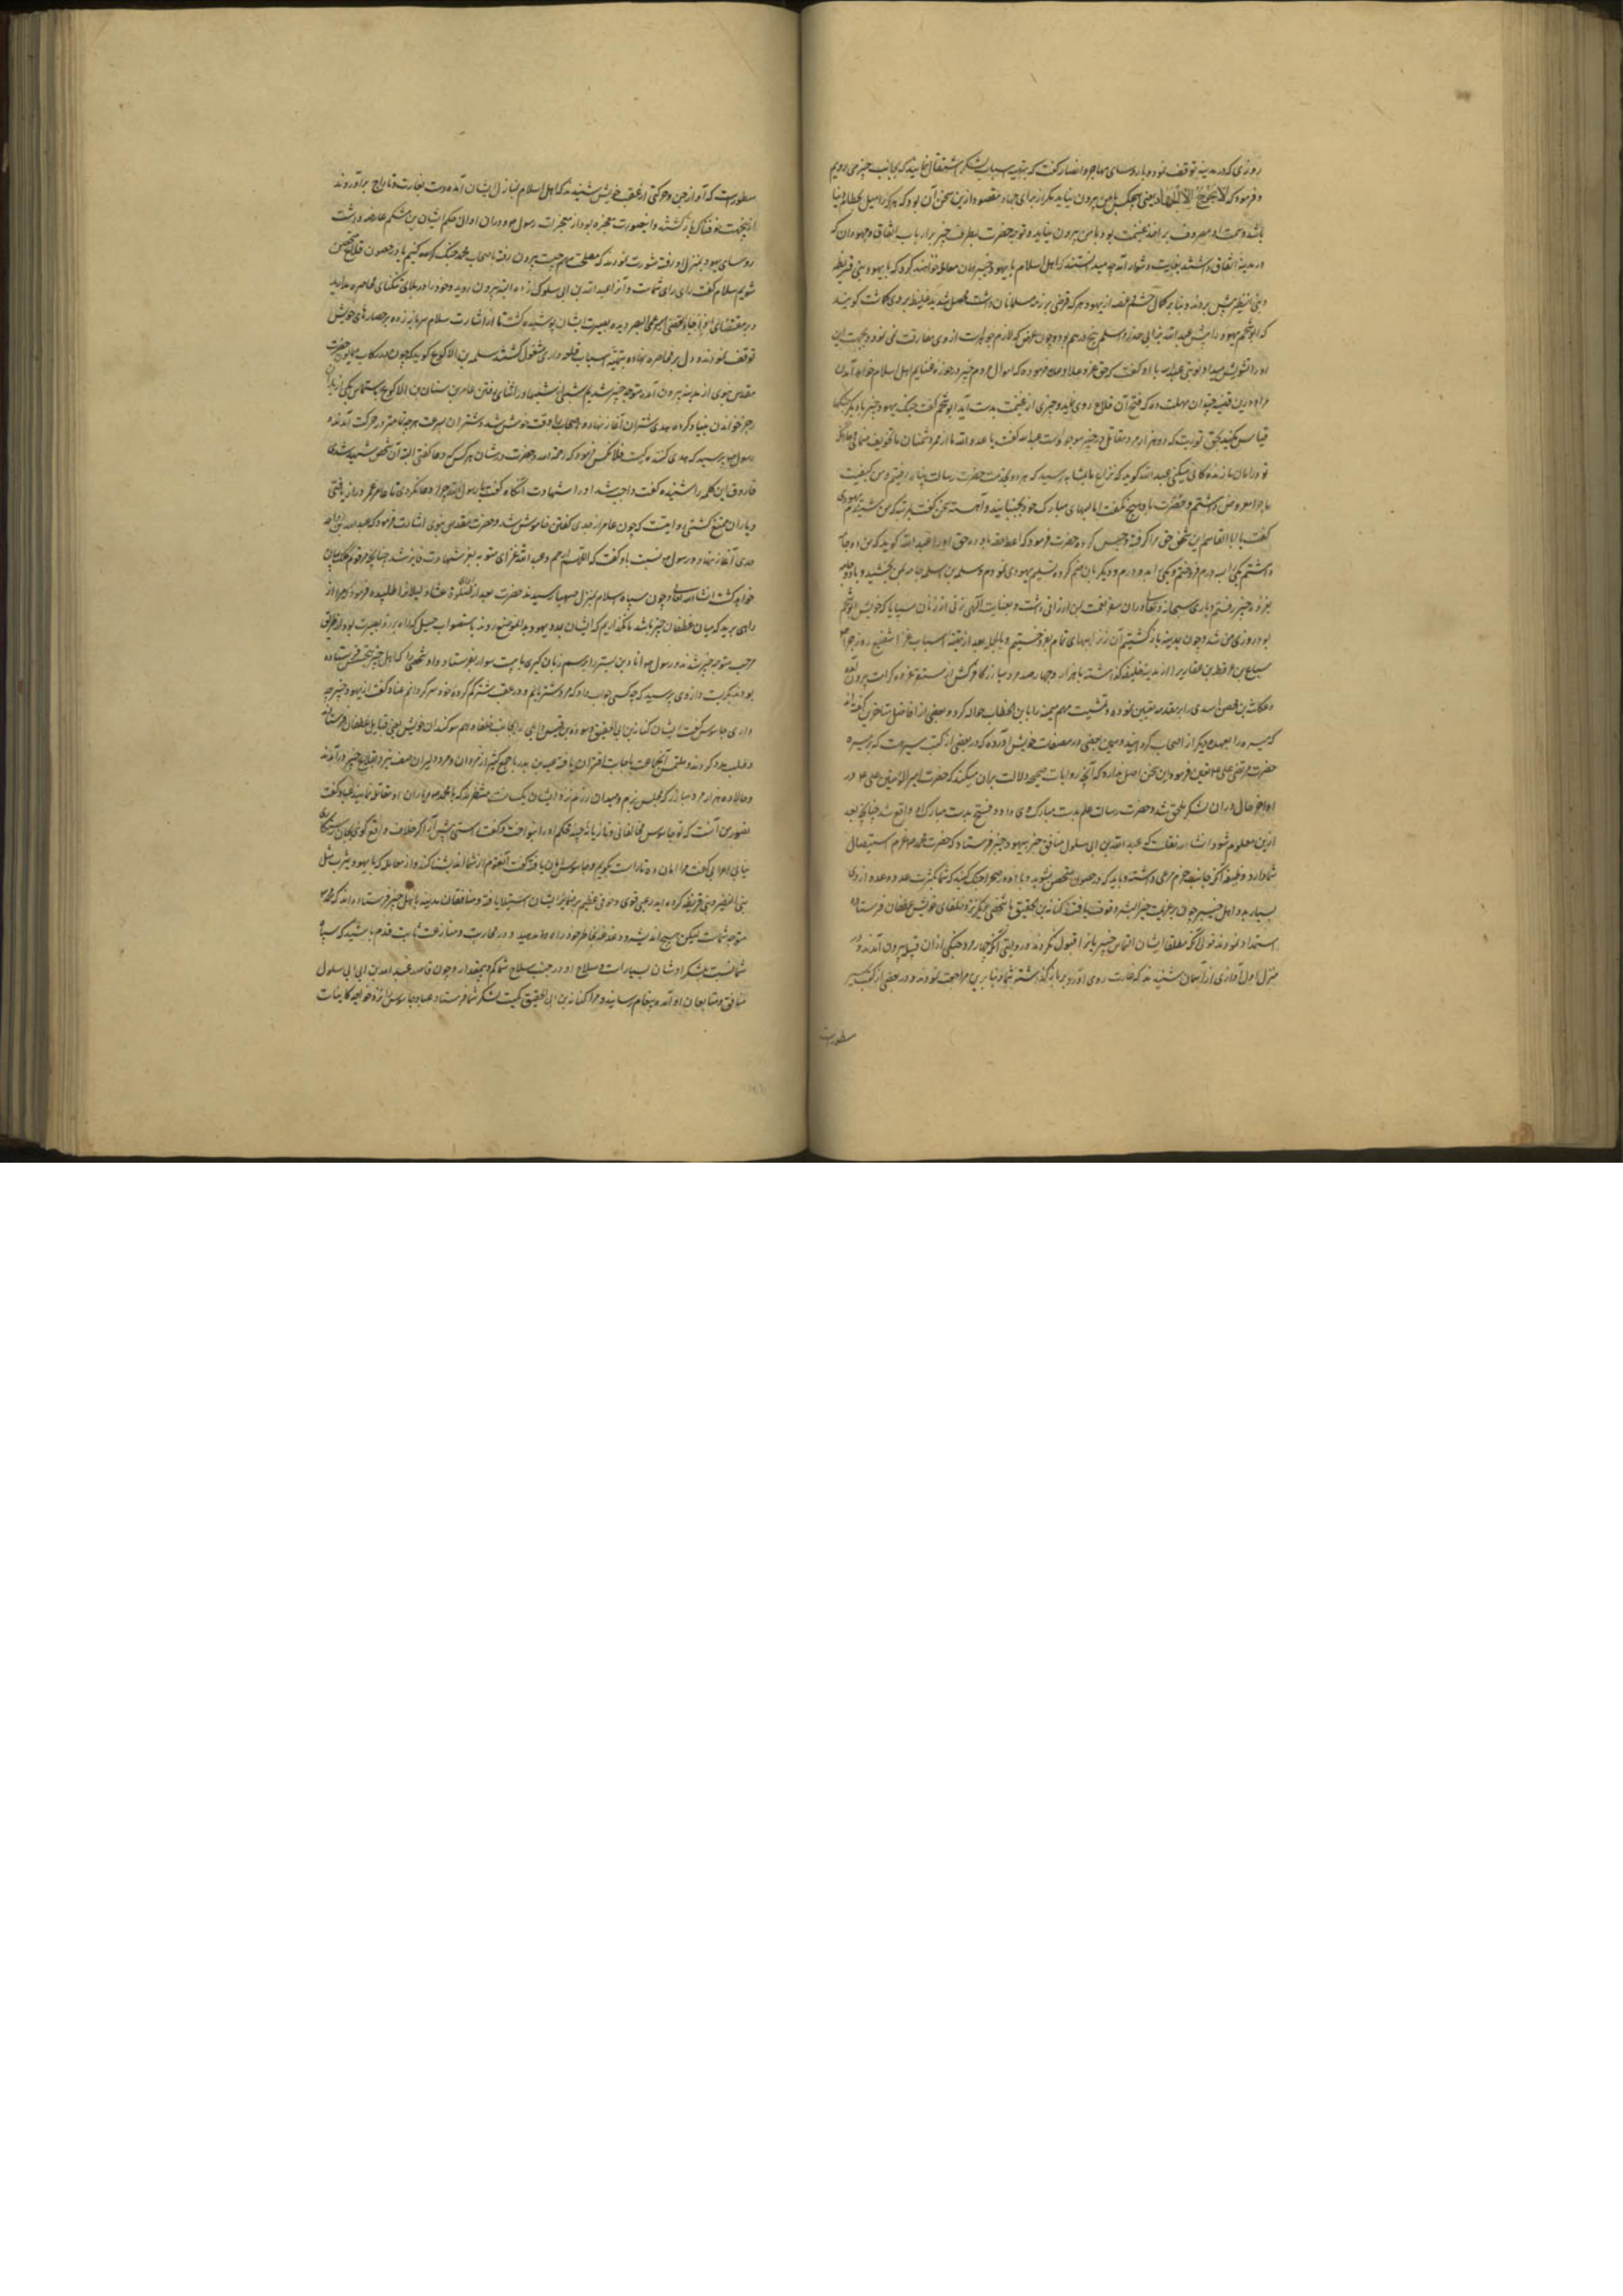 روزی که در مدینه توقف نمود و با رؤسای مهاجر و انصار گفت که بتهیه اسباب لشکر اشتغال نمایند که بجانب خیبر می رویم
و فرمود که لا یخرج الا للجهاد یعنی هیچکس با من بیرون نیاید مگر از برای جهاد و مقصود ازین سخن آن بود که هر که را میل بحطام دنیا
باشد و همت او مصروف بر اخذ غنیمت بود با من بیرون نیاید و توجه حضرت بطرف خیبر بر ارباب نفاق و جهودان که
در مدینه اتفاق داشتند بغایت دشوار آمد چه میدانستند که اهل اسلام با یهود خیبر همان معامله خواهند کرد که با یهود بنی قریظه
و بنی النضیر پیش بردند و بنا بر کمال خشم و غصه از یهود هر که قرضی بر ذمه مسلمانان داشت محصل شدید غلیظ بر وی گماشت گویند
که ابو شحم یهود را پیش عبد الله بن ابی حدرد اسلمی پنج درهم بود و چون
او را تشویش میداد نوبتی عبد الله با او گفت که حق عز و علا وعده فرموده که اموال مردم خیبر در حوزه غنایم اهل اسلام خواهد آمدن
مرا درین قضیه چندان مهلت ده که فتح آن قلاع روی نماید و چیزی از غنیمت بدست آید ابو شحم گفت جنگ یهود خیبر را با دیگر جنگها
قیاس مکنید بحق توریت که ده هزار مرد مقاتل در خیبر موجود است عبد الله گفت یا عدو الله ما را از مرد دشمنان ما تخویف مینمائی
تو در امان ما زندگانی میکنی عبد الله گوید که نزاع ما بمثابه رسید که هر دو بخدمت حضرت رسالت پناه رفتیم و من کیفیت
ماجرا معروض داشتم و حضرت با او هیچ نگفت اما لبهای مبارک خود بجنبانید و آهسته سخن گفت
گفت یا ابا القاسم این شخص حق مرا گرفته و حبس کرده حضرت فرمود که اعط حقه یا او ده حق او را عبد الله گوید که من دو جامه
داشتم یکی را بسه درم فروختم و یکی را بدو درم و دیگر بان ضم کرده تسلیم یهودی نمودم و سلمه بن اسلم جامه بمن بخشید و با دو جامه
بغزو خیبر رفتم و باری سبحانه و تعالی دران سفر نعمت بمن ارزانی داشت و بعنایت الهی زنی از زنان سبایا که خویش ابو شحم
بود روزی من شد و چون بمدینه باز گشتیم آن زن را ببهای تمام بدو فروختیم
سباع بن عرفطه بن غفاری را در مدینه خلیفه گذاشته با هزار و چهار صد مرد مبارز
و عکاشه بن محصن اسدی را بر مقدمه تعیین نموده و تمشیت مهم میمنه را با بن الخطاب حواله کرد و بعضی از افاضل متاخرین گفته اند
که میسره را بعهده دیگر از اصحاب کردانید و همین بعضی در مصنفات خویش آورده که در بعضی از کتب سیر هست که بر میسره
حضرت مرتضی علی تعیین فرمود و این سخن اصل ندارد که آنچه روایات صحیحه دلالت بران میکند که حضرت امیر المؤمنین علی در
اواخر حال دران لشکر ملحق شد و حضرت رسالت علم بدست مبارک وی داد و فتح بدست مبارک او واقع شد چنانچه بعد
ازین معلوم شود ان شاء الله نقلست که عبد الله بن ابی سلول منافق خبر بیهود خیبر فرستاد که حضرت محمد عزم استیصال
شما دارد وظیفه آنکه جانب حزم مرعی داشته و باید که در حصون متحصن نشوید و با او در صحرا جنگ کنید که شما بکثرت عدد و عده از وی
بسیارید و اهل خیبر چون بر عزیمت خیر البشر وقوف یافتند کنانه بن ابی الحقیق با شخصی دیگر نزد حلفای خویش غطفان فرستادند
استمداد نمودند قولی آنکه مطلقا ایشان التماس خیبریانرا قبول نکردند و روایتی آنکه چهار هزار مرد جنگی ازان قبیله بیرون آمدند
منزل اول آوازی از آسمان شنیدند که غارت روی آورد بر مال گذاشته شما و بنا برین مراجعت نمودند و در بعضی از کتب سیر
مسطورست
مسطورست که آواز حس و حرکتی از عقب خویش شنیدند که اهل اسلام بمنازل ایشان آمده دست بغارت و تاراج برآوردند
ازینجهت خوفناک باز گشتند و اینصورت معجزه بود از معجزات رسول و دران اوان حکم ایشان ابن مشکم عارضه داشت
رؤسای یهود بمنزل او رفته مشورت نمودند که مصلحت ما در چیست بیرون رفته با اصحاب محمد جنگ کنیم یا در حصون و قلاع متحصن
شویم سلام گفت رای رای شماست و آنرا عبد الله بن ابی سلوک زده البته بیرون روید و خود را در بلای تنگنای محاصره مدارید
و بر مقتضای اذا جاء القضا عمی البصر دیده بصیرت ایشان پوشیده گشت تا از اشارت سلام سر باز زده بر حصارهای خویش
توقف نمودند و دل بر محاصره نهاده بتهیه اسباب قلعه داری مشغول گشتند سلمه بن الاکوع گوید که چون در رکاب همایون حضرت
مقدس نبوی از مدینه بیرون آمده متوجه خیبر شدیم شبی از شبها در اثنای رفتن عامر بن سنان بن الاکوع بالتماس یکی از یاران
رجز خواندن بنیاد کرد و حدی شتران آغاز نهاد و اصحاب را وقت خوش شد و شتران بسرعت هر چه تمامتر در حرکت آمدند
رسول پرسید که حدی کننده کیست فلان کس فرمود که رحمه الله و حضرت در شان هر کس که دعا گفتی البته آن شخص شهید شدی
فاروق این کلمه را شنیده گفت واجب شد او را شهادت انگاه گفت یا رسول الله چرا دعا نکردی تا عامر عمر دراز یافتی
و یاران متمتع گشتی روایتست که چون عامر از حدی گفتن خاموش شد حضرت مقدس نبوی اشارت فرمود که عبد الله بن رواحه
حدی آغاز نهاد و رسول نسبت باو گفت که اللهم ارحم و عبد الله غزای موته بعز شهادت فایز شد چنانچه مرقوم کلک بیان
خواهد گشت ان شاء الله تعالی و چون سپاه اسلام بمنزل صهبا رسیدند حضرت بعد از صلوة عشا دلیلانرا طلبیده فرمود که ما را از
راهی برید که میان غطفان و خیبر باشد تا نگذاریم که ایشان بمدد یهود
مرحب متوجه خیبر شدند و رسول عباد بن بشر را برسم زبان گیری با بیست سوار بفرستاد و او شخصی را که اهل خیبر بتجسس فرستاده
بودند بگرفت و از وی پرسید که چه کسی جواب داد که مرد شتربانم و در عقب شتر گم کرده خود سرگردانم عباد گفت از یهود خیبر چه
داری جاسوس گفت ایشان کنانه بن ابی الحقیق و هوذه بن قیس وایلی را بجانب حلفا و هم سوگندان خویش یعنی قبایل غطفان فرستاده
و طلب مدد کردند و ملتمس آنجماعت باجابت اقتران یافته عیینه بن بدر با جمع کثیر از مردان مرد و دلیران صف نبرد بقلاع خیبر در آمدند
و حالا ده هزار مرد مبارز که مجلس بزم و میدان رزم نزد ایشان یکسانست منتظرند که با محمد و یاران او مقاتله نمایند عباد گفت
تصور من آنست که تو جاسوس مخالفانی و تازیانه چند محکم او را بنواخت و گفت راستی پیش آر اگر خلاف واقع گوئی بجان
نیابی اعرابی گفت مرا امان ده تا راست بگویم و جاسوس امان یافته گفت آنقوم از شما اندیشناکند و از معامله که با یهود یثرب مثل
بنی النضیر و بنی قریظه کرده اید رعبی قوی و خوفی عظیم بر ضمایر ایشان استیلا یافته و منافقان مدینه باهل خیبر فرستاده اند که محمد
متوجه شماست لیکن هیچ اندیشه و دغدغه بخاطر خود راه مدهید و در محاربت و منازعت ثابت قدم باشید که سپاه
شما نسبت بلشکر او بسیارست و سلاح او در جنب سلاح شما کم و بیمقدار و چون قاصد عبد الله بن ابی سلول
منافق و متابعان او آمده پیغام رسانیدند مرا کنانه بن ابی الحقیق بکمیت لشکر شما فرستاد عباد جاسوس را نزد خواجه کاینات